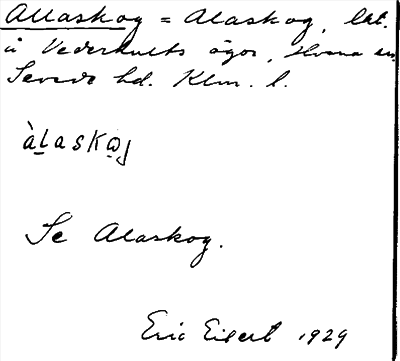 Allaskog = Alaskog, lät.
å Vederhults ägor, Hvena sn,
Sevede hd. Klm. l.
àl̠askω̠g
Se Alaskog.
Eric Elgert 1929